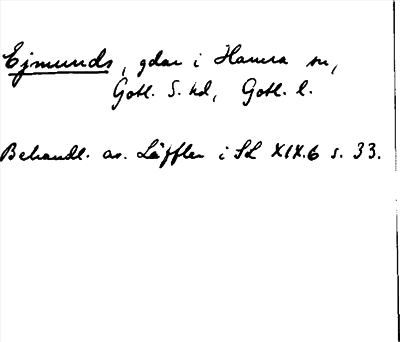 Ejmunds, gdar i Hamra sn,
Gotl. S. hd, Gotl. l.
Behandl. av. Läffler i SL XIX.6 s. 33.